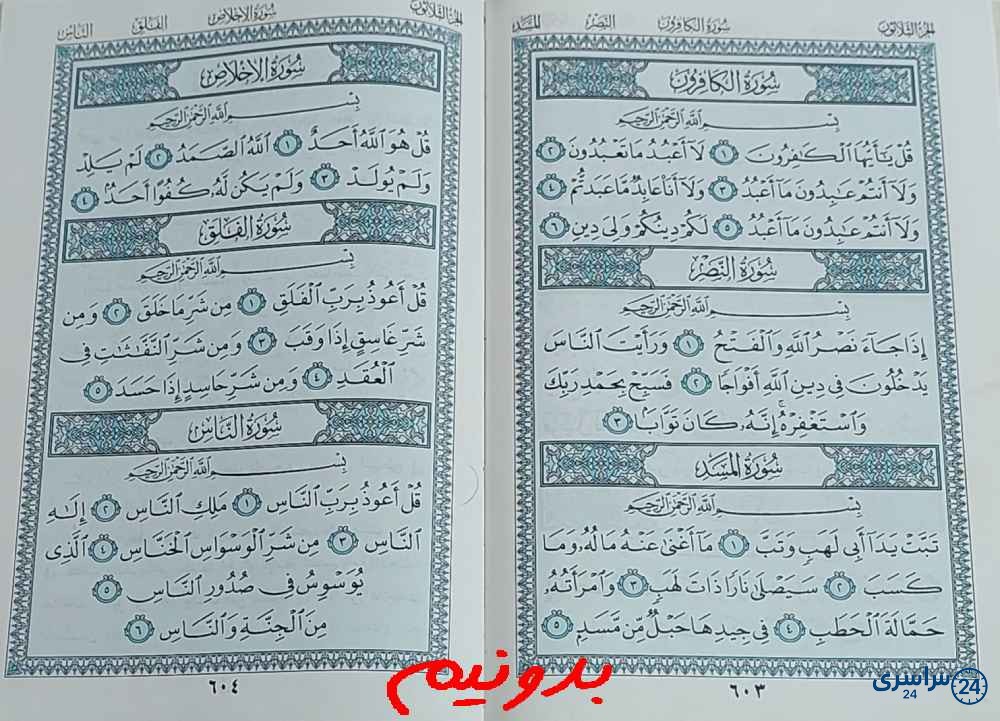 الجزء الثلاثون سورة الكافرون النصر المسد
سُورَةُ الكَافِرُونَ
بِسْمِ اللَّهِ الرَّحْمَٰنِ الرَّحِيمِ
قُلْ يَٰٓأَيُّهَا ٱلْكَٰفِرُونَ ١ لَآ أَعْبُدُ مَا تَعْبُدُونَ ٢
وَلَآ أَنتُمْ عَٰبِدُونَ مَآ أَعْبُدُ ٣ وَلَآ أَنَا۠ عَابِدٌ مَّا عَبَدتُّمْ ٤
وَلَآ أَنتُمْ عَٰبِدُونَ مَآ أَعْبُدُ ٥ لَكُمْ دِينُكُمْ وَلِىَ دِينِ ٦
سُورَةُ النَّصْرِ
بِسْمِ اللَّهِ الرَّحْمَٰنِ الرَّحِيمِ
إِذَا جَآءَ نَصْرُ ٱللَّهِ وَٱلْفَتْحُ ١ وَرَأَيْتَ ٱلنَّاسَ
يَدْخُلُونَ فِى دِينِ ٱللَّهِ أَفْوَاجًا ٢ فَسَبِّحْ بِحَمْدِ رَبِّكَ
وَٱسْتَغْفِرْهُ إِنَّهُۥ كَانَ تَوَّابًۢا ٣
سُورَةُ المَسَدِ
بِسْمِ اللَّهِ الرَّحْمَٰنِ الرَّحِيمِ
تَبَّتْ يَدَآ أَبِى لَهَبٍ وَتَبَّ ١ مَآ أَغْنَىٰ عَنْهُ مَالُهُۥ وَمَا
كَسَبَ ٢ سَيَصْلَىٰ نَارًا ذَاتَ لَهَبٍ ٣ وَٱمْرَأَتُهُۥ
حَمَّالَةَ ٱلْحَطَبِ ٤ فِى جِيدِهَا حَبْلٌ مِّن مَّسَدٍۭ ٥
٦٠٣
الجزء الثلاثون سورة الإخلاص الفلق الناس
سُورَةُ الإِخْلَاصِ
بِسْمِ اللَّهِ الرَّحْمَٰنِ الرَّحِيمِ
قُلْ هُوَ ٱللَّهُ أَحَدٌ ١ ٱللَّهُ ٱلصَّمَدُ ٢ لَمْ يَلِدْ
وَلَمْ يُولَدْ ٣ وَلَمْ يَكُن لَّهُۥ كُفُوًا أَحَدٌۢ ٤
سُورَةُ الفَلَقِ
بِسْمِ اللَّهِ الرَّحْمَٰنِ الرَّحِيمِ
قُلْ أَعُوذُ بِرَبِّ ٱلْفَلَقِ ١ مِن شَرِّ مَا خَلَقَ ٢ وَمِن
شَرِّ غَاسِقٍ إِذَا وَقَبَ ٣ وَمِن شَرِّ ٱلنَّفَّٰثَٰتِ فِى
ٱلْعُقَدِ ٤ وَمِن شَرِّ حَاسِدٍ إِذَا حَسَدَ ٥
سُورَةُ النَّاسِ
بِسْمِ اللَّهِ الرَّحْمَٰنِ الرَّحِيمِ
قُلْ أَعُوذُ بِرَبِّ ٱلنَّاسِ ١ مَلِكِ ٱلنَّاسِ ٢ إِلَٰهِ
ٱلنَّاسِ ٣ مِن شَرِّ ٱلْوَسْوَاسِ ٱلْخَنَّاسِ ٤ ٱلَّذِى
يُوَسْوِسُ فِى صُدُورِ ٱلنَّاسِ ٥
مِنَ ٱلْجِنَّةِ وَٱلنَّاسِ ٦
٦٠٤
بدونیم
سراسری 24
24